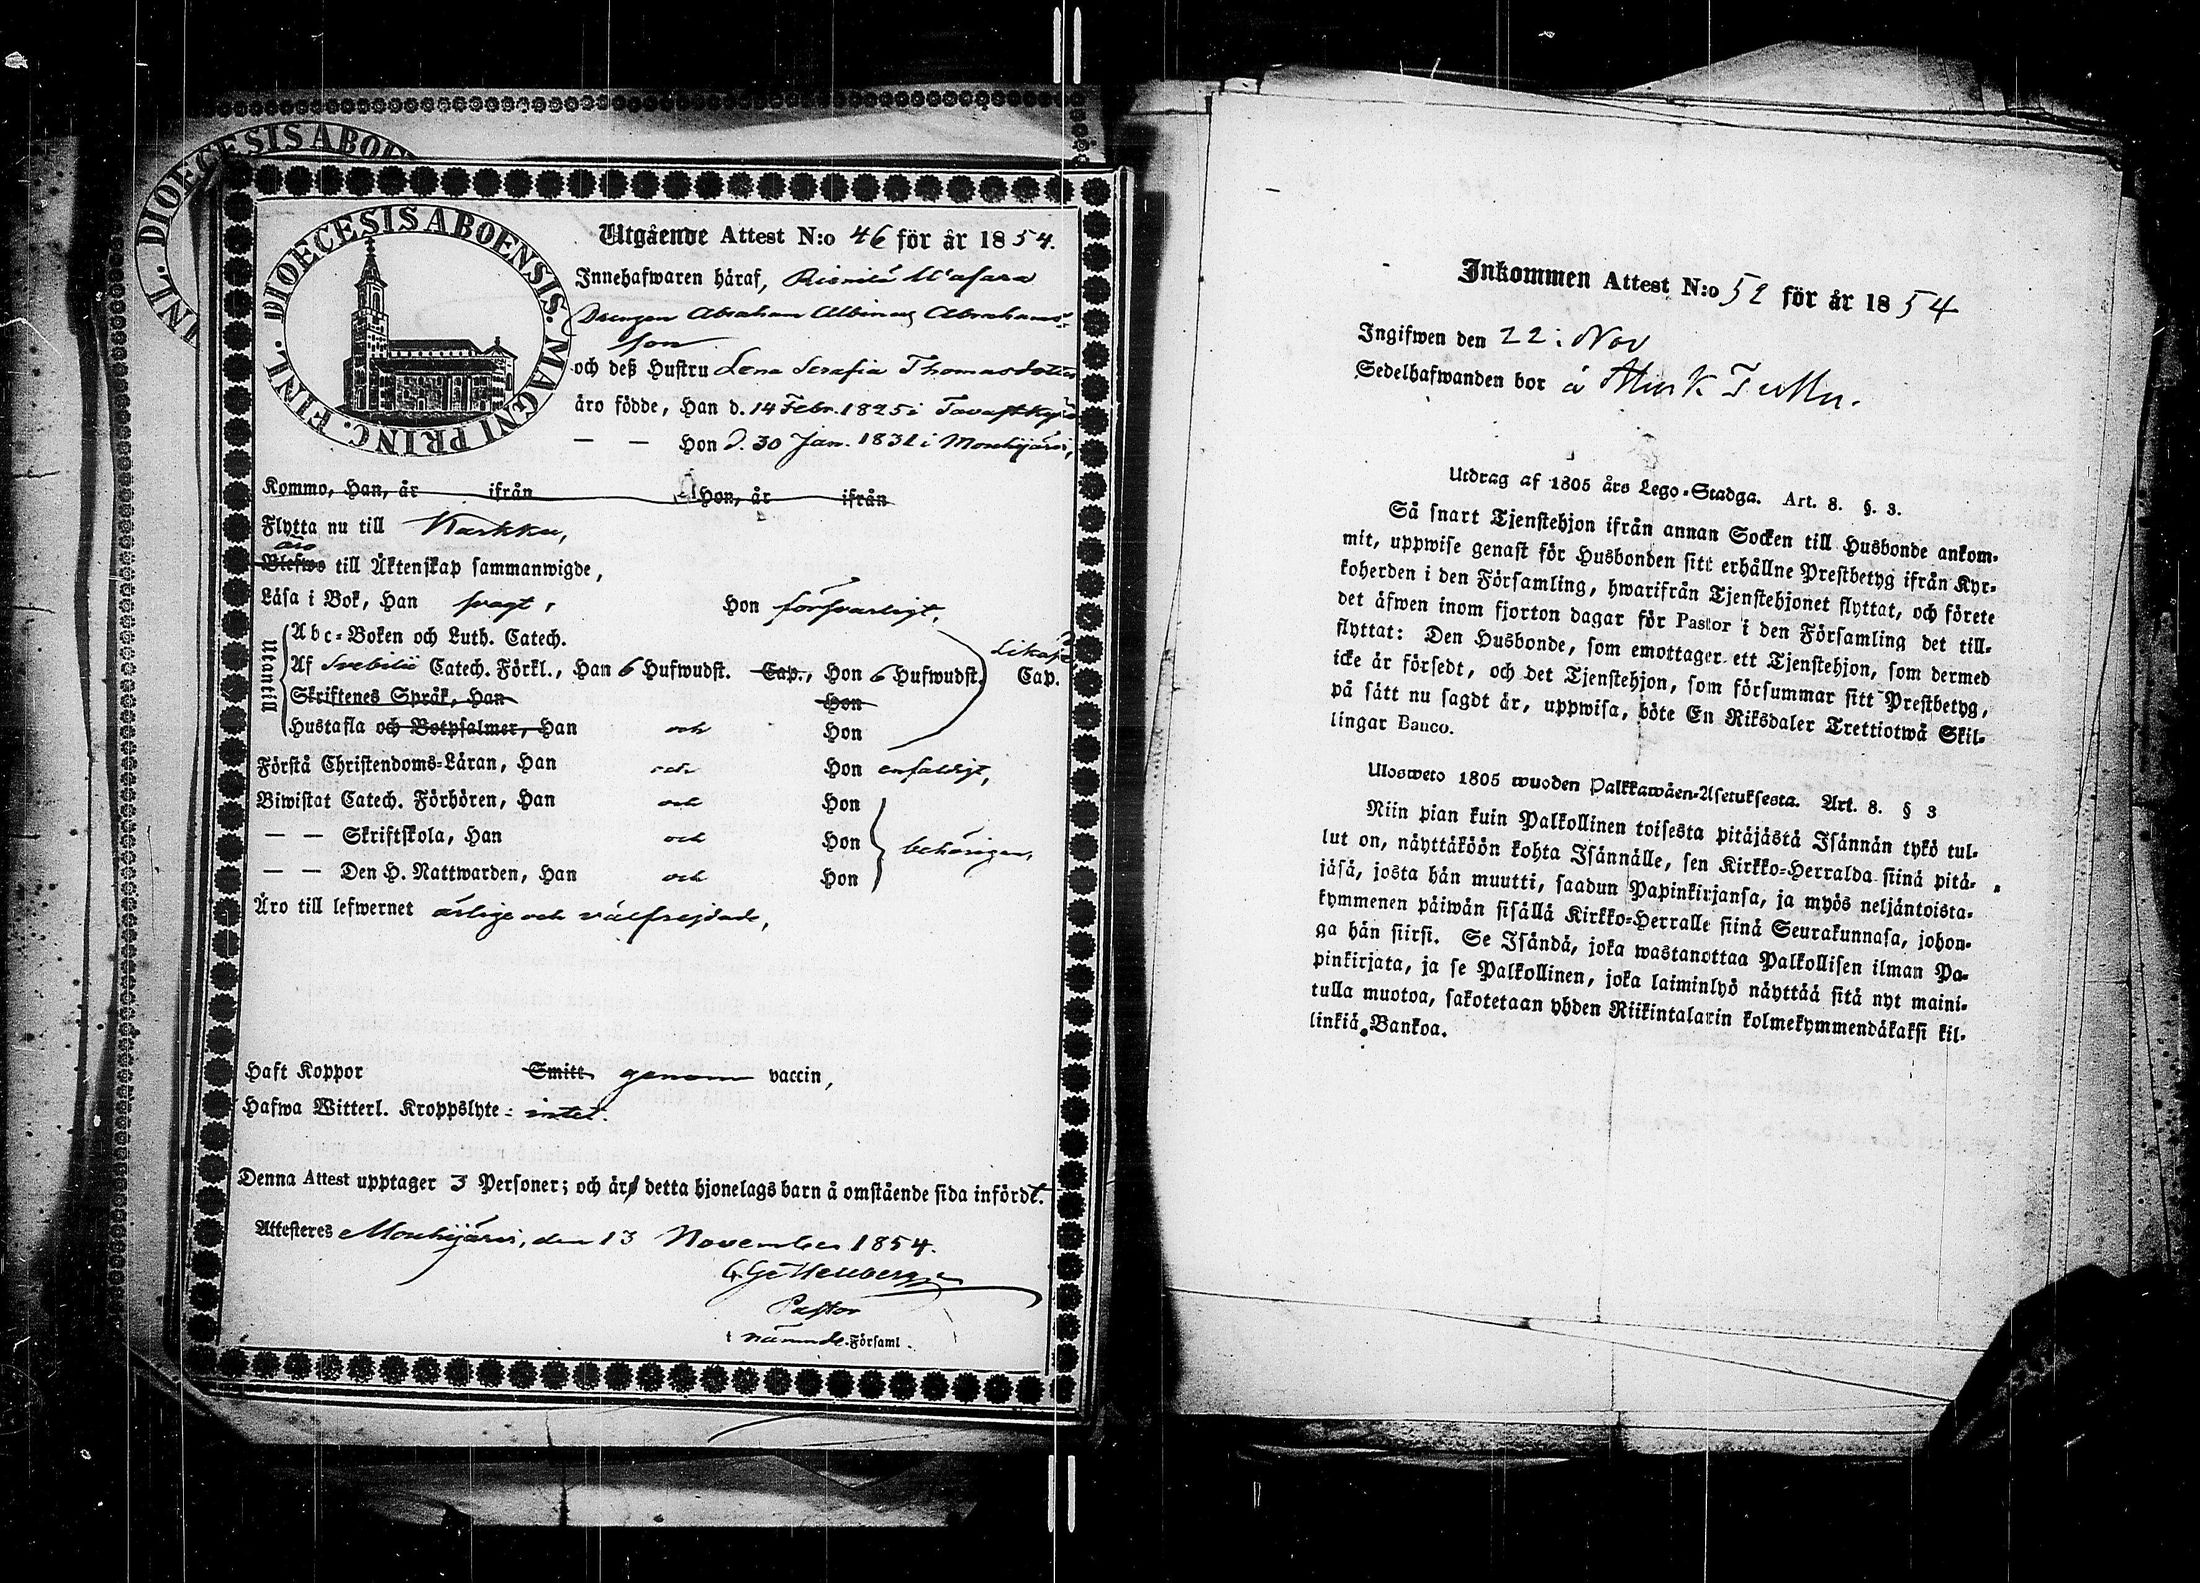 DIOECESIS ABOENSIS. MAGNI PRINC. FINL.
Utgående Attest N:o 46 för år 1854.
Innehafwaren häraf,
Drengen Abraham Albinus Abrahams-
son
och deß Hustru Lena Serafia Thomasdotter
äro födde, Han d. 14 Febr. 1825 i Tavastkyro
— — Hon d. 30 Jan. 1831 i Mouhijärvi,
Kommo, Han, år ifrån Hon, år ifrån
Flytta nu till Karkku,
äro
Blefwo till Äktenskap sammanwigde,
Läsa i Bok, Han svagt, Hon försvarligt,
Utantill
Abc-Boken och Luth. Catech.
Af Svebilii Catech. Förkl., Han 6 Hufwudst. Cap., Hon 6 Hufwudst. Cap.
Likaså
Skriftenes Språk, Han Hon
Hustafla och Botpsalmer, Han och Hon
Förstå Christendoms-Läran, Han och Hon enfaldigt,
Biwistat Catech. Förhören, Han och Hon
— — Skriftskola, Han och Hon behörigen,
— — Den H. Nattwarden, Han och Hon
Äro till lefwernet ärlige och välfrejdade,
Haft Koppor Smitt genom vaccin,
Hafwa Witterl. Kroppslyte: intet.
Denna Attest upptager 3 Personer; och är detta hjonelags barn å omstående sida infördt.
Attesteres Mouhijärvi, den 13 November 1854.
Pastor
i nämnde Församl.
Inkommen Attest N:o 52 för år 1854
Ingifwen den 22: Nov
Sedelhafwanden bor å
Utdrag af 1805 års Lego-Stadga. Art. 8. §. 3.
Så snart Tjenstehjon ifrån annan Socken till Husbonde ankom-
mit, uppwise genast för Husbonden sitt erhållne Prestbetyg ifrån Kyr-
koherden i den Församling, hwarifrån Tjenstehjonet flyttat, och förete
det äfwen inom fjorton dagar för Pastor i den Församling det till-
flyttat: Den Husbonde, som emottager ett Tjenstehjon, som dermed
icke är försedt, och det Tjenstehjon, som försummar sitt Prestbetyg,
på sätt nu sagdt är, uppwisa, böte En Riksdaler Trettiotwå Skil-
lingar Banco.
Ulosweto 1805 wuoden Palkkawäen-Asetuksesta. Art. 8. § 3
Niin pian kuin Palkollinen toisesta pitäjästä Isännän tykö tul-
lut on, näyttäköön kohta Isännälle, sen Kirkko-Herralda siinä pitä-
jäsä, josta hän muutti, saadun Papinkirjansa, ja myös neljäntoista-
kymmenen päiwän sisällä Kirkko-Herralle siinä Seurakunnasa, johon-
ga hän siirsi. Se Isändä, joka wastanottaa Palkollisen ilman Pa-
pinkirjata, ja se Palkollinen, joka laiminlyö näyttää sitä nyt maini-
tulla muotoa, sakotetaan yhden Riikintalarin kolmekymmendäkaksi kil-
linkiä Bankoa.